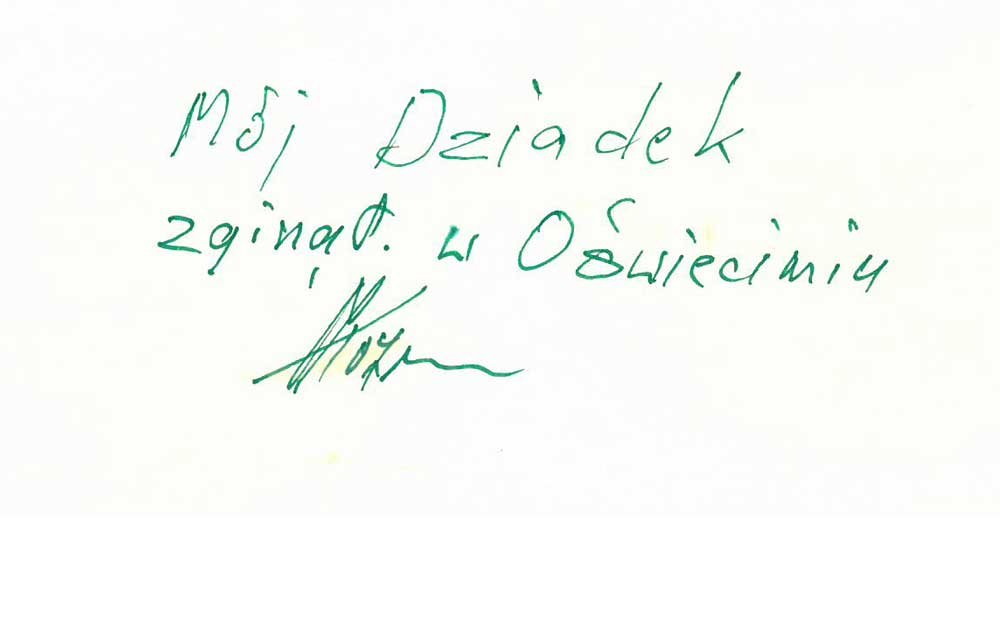 Mój Dziadek
zginął. w Oświęcimiu